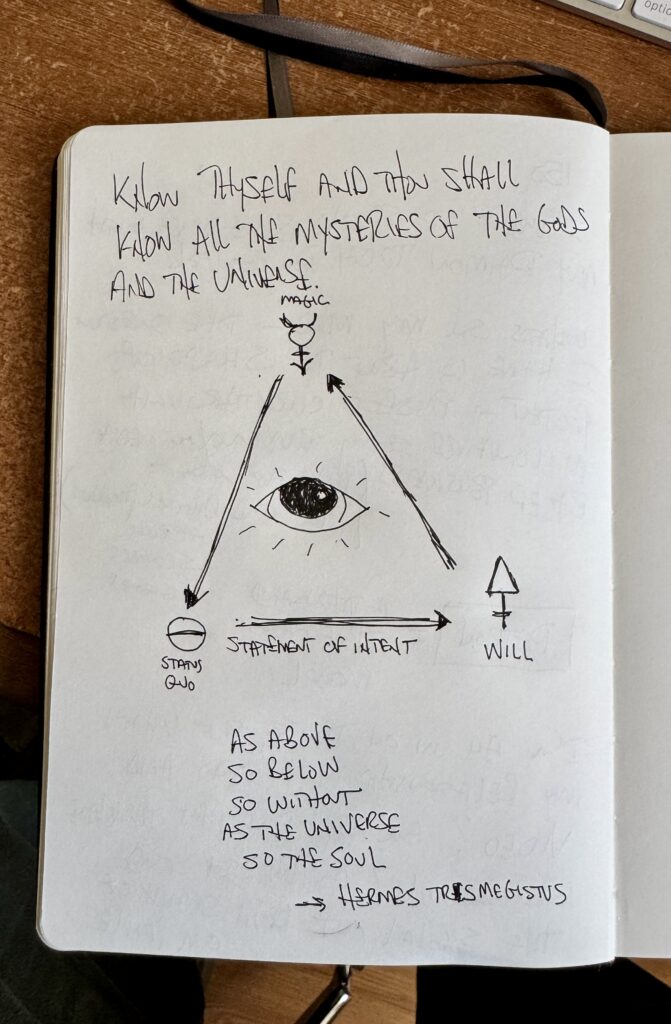 optic
KNOW THYSELF AND THOU SHALL
KNOW ALL THE MYSTERIES OF THE GODS
AND THE UNIVERSE.
MAGIC
STATEMENT OF INTENT
STATUS
QUO
WILL
AS ABOVE
SO BELOW
SO WITHOUT
AS THE UNIVERSE
SO THE SOUL
→ HERMES TRISMEGISTUS